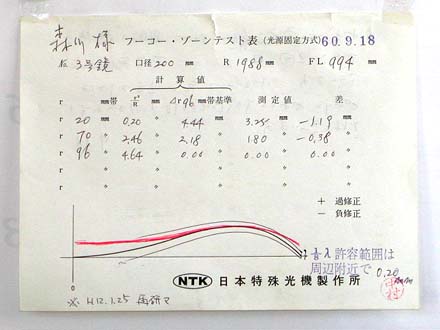 森川 様 フーコー・ゾーンテスト表 (光源固定方式) 60.9.18
3号鏡 口径 200 ㎜ R 1988 ㎜ FL 994 ㎜
計算値
r ㎜帯 r²/R Δr96 ㎜帯基準 測定値 差
r 20 ㎜ 0.20 4.44 3.25 -1.19
r 70 ㎜ 2.46 2.18 1.80 -0.38
r 96 ㎜ 4.64 0.00 0.00 0.00
r ㎜
r ㎜
+ 過修正
- 負修正
0
1/8 λ 許容範囲は
周辺附近で 0.20 ㎜
NTK 日本特殊光機製作所
※ H12.1.25 再研マ